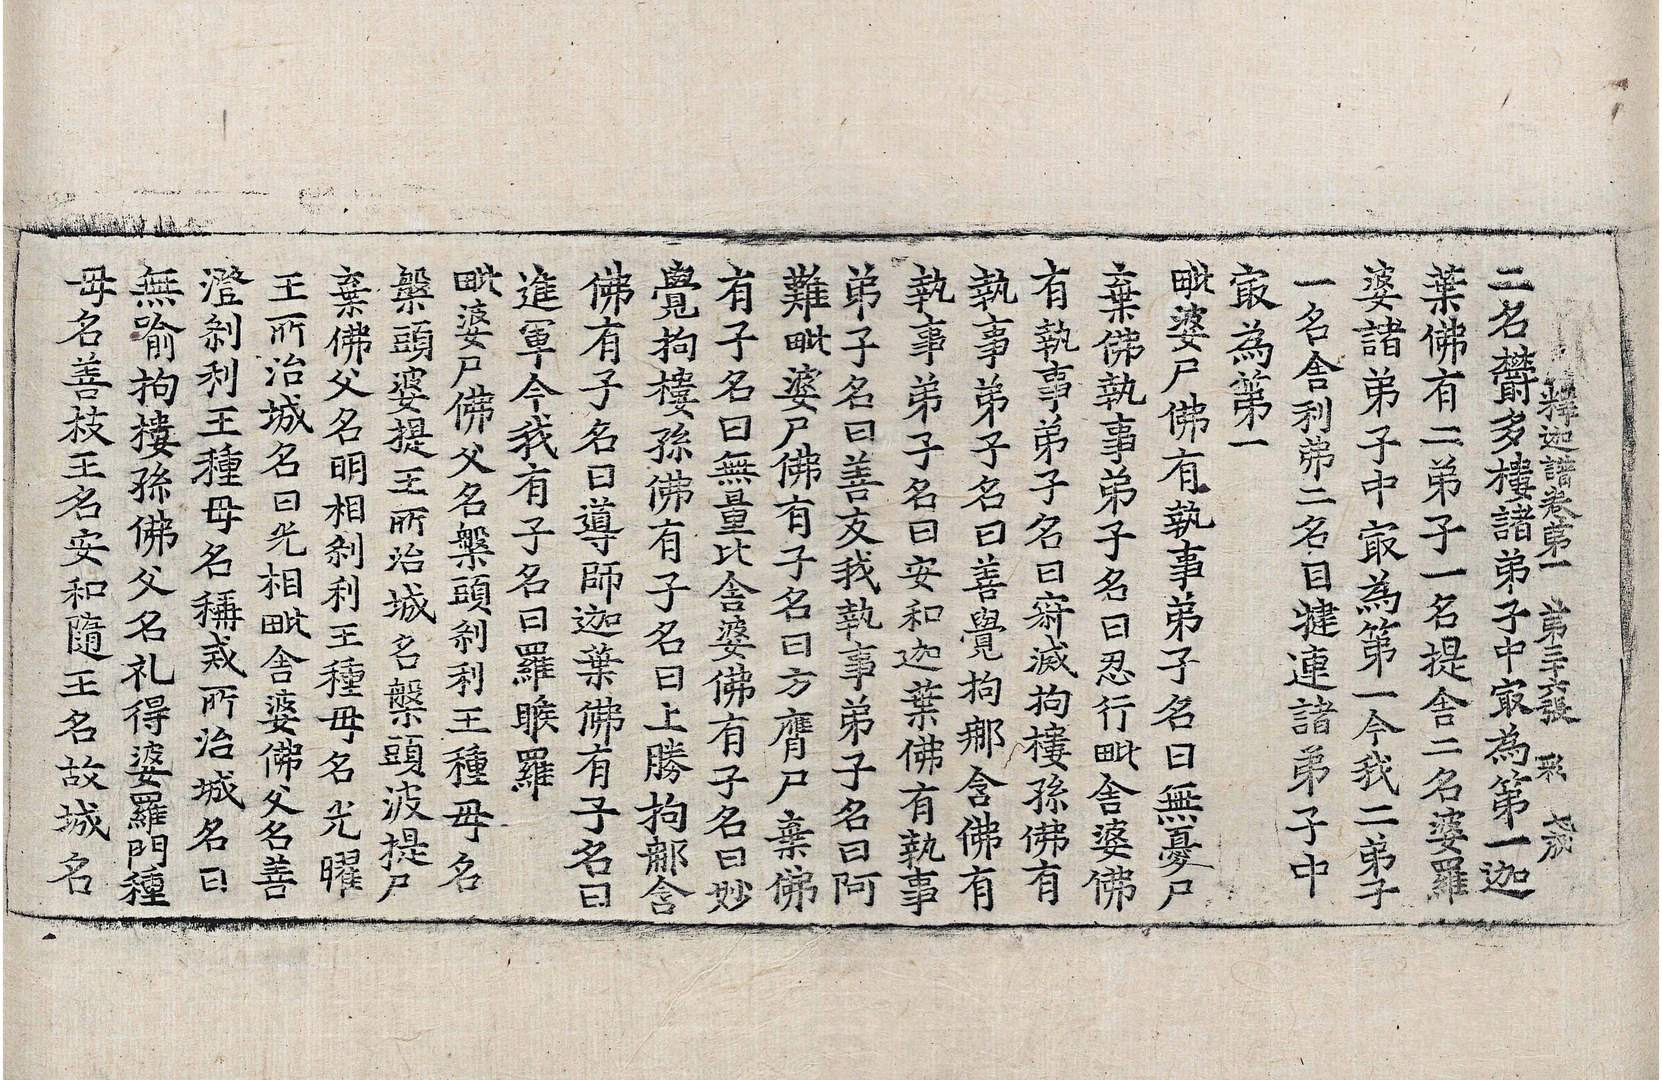 釋迦譜卷第一　第三十六張
二名欝多樓諸弟子中㝡為第一迦
葉佛有二弟子一名提舍二名婆羅
婆諸弟子中㝡為第一今我二弟子
一名舍利弗二名目揵連諸弟子中
㝡為第一
毗婆尸佛有執事弟子名曰無憂尸
棄佛執事弟子名曰忍行毗舍婆佛
有執事弟子名曰寂滅拘樓孫佛有
執事弟子名曰善覺拘那含佛有
執事弟子名曰安和迦葉佛有執事
弟子名曰善友我執事弟子名曰阿
難毗婆尸佛有子名曰方膺尸棄佛
有子名曰無量毗舍婆佛有子名曰妙
覺拘樓孫佛有子名曰上勝拘那含
佛有子名曰導師迦葉佛有子名曰
進軍今我有子名曰羅睺羅
毗婆尸佛父名槃頭剎利王種母名
槃頭婆提王所治城名槃頭波提尸
棄佛父名明相剎利王種母名光曜
王所治城名曰光相毗舍婆佛父名善
澄剎利王種母名稱戒所治城名曰
無喻拘樓孫佛父名礼得婆羅門種
母名善枝王名安和隨王名故城名